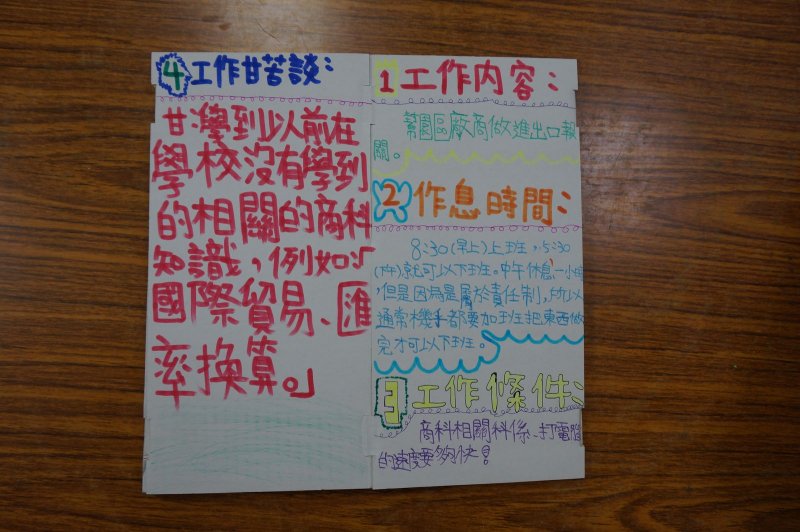 1 工作內容：
幫園區廠商做進出口報
關。
2 作息時間：
8:30(早上)上班，5:30
(下午)就可以下班。中午休息一小時
，但是因為是屬於責任制，所以
通常幾乎都要加班把東西做
完才可以下班。
3 工作條件：
商科相關科係、打電腦
的速度要夠快！
4 工作甘苦談：
甘：學到以前在
學校沒有學到
的相關的商科
知識，例如：「
國際貿易、匯
率換算。」